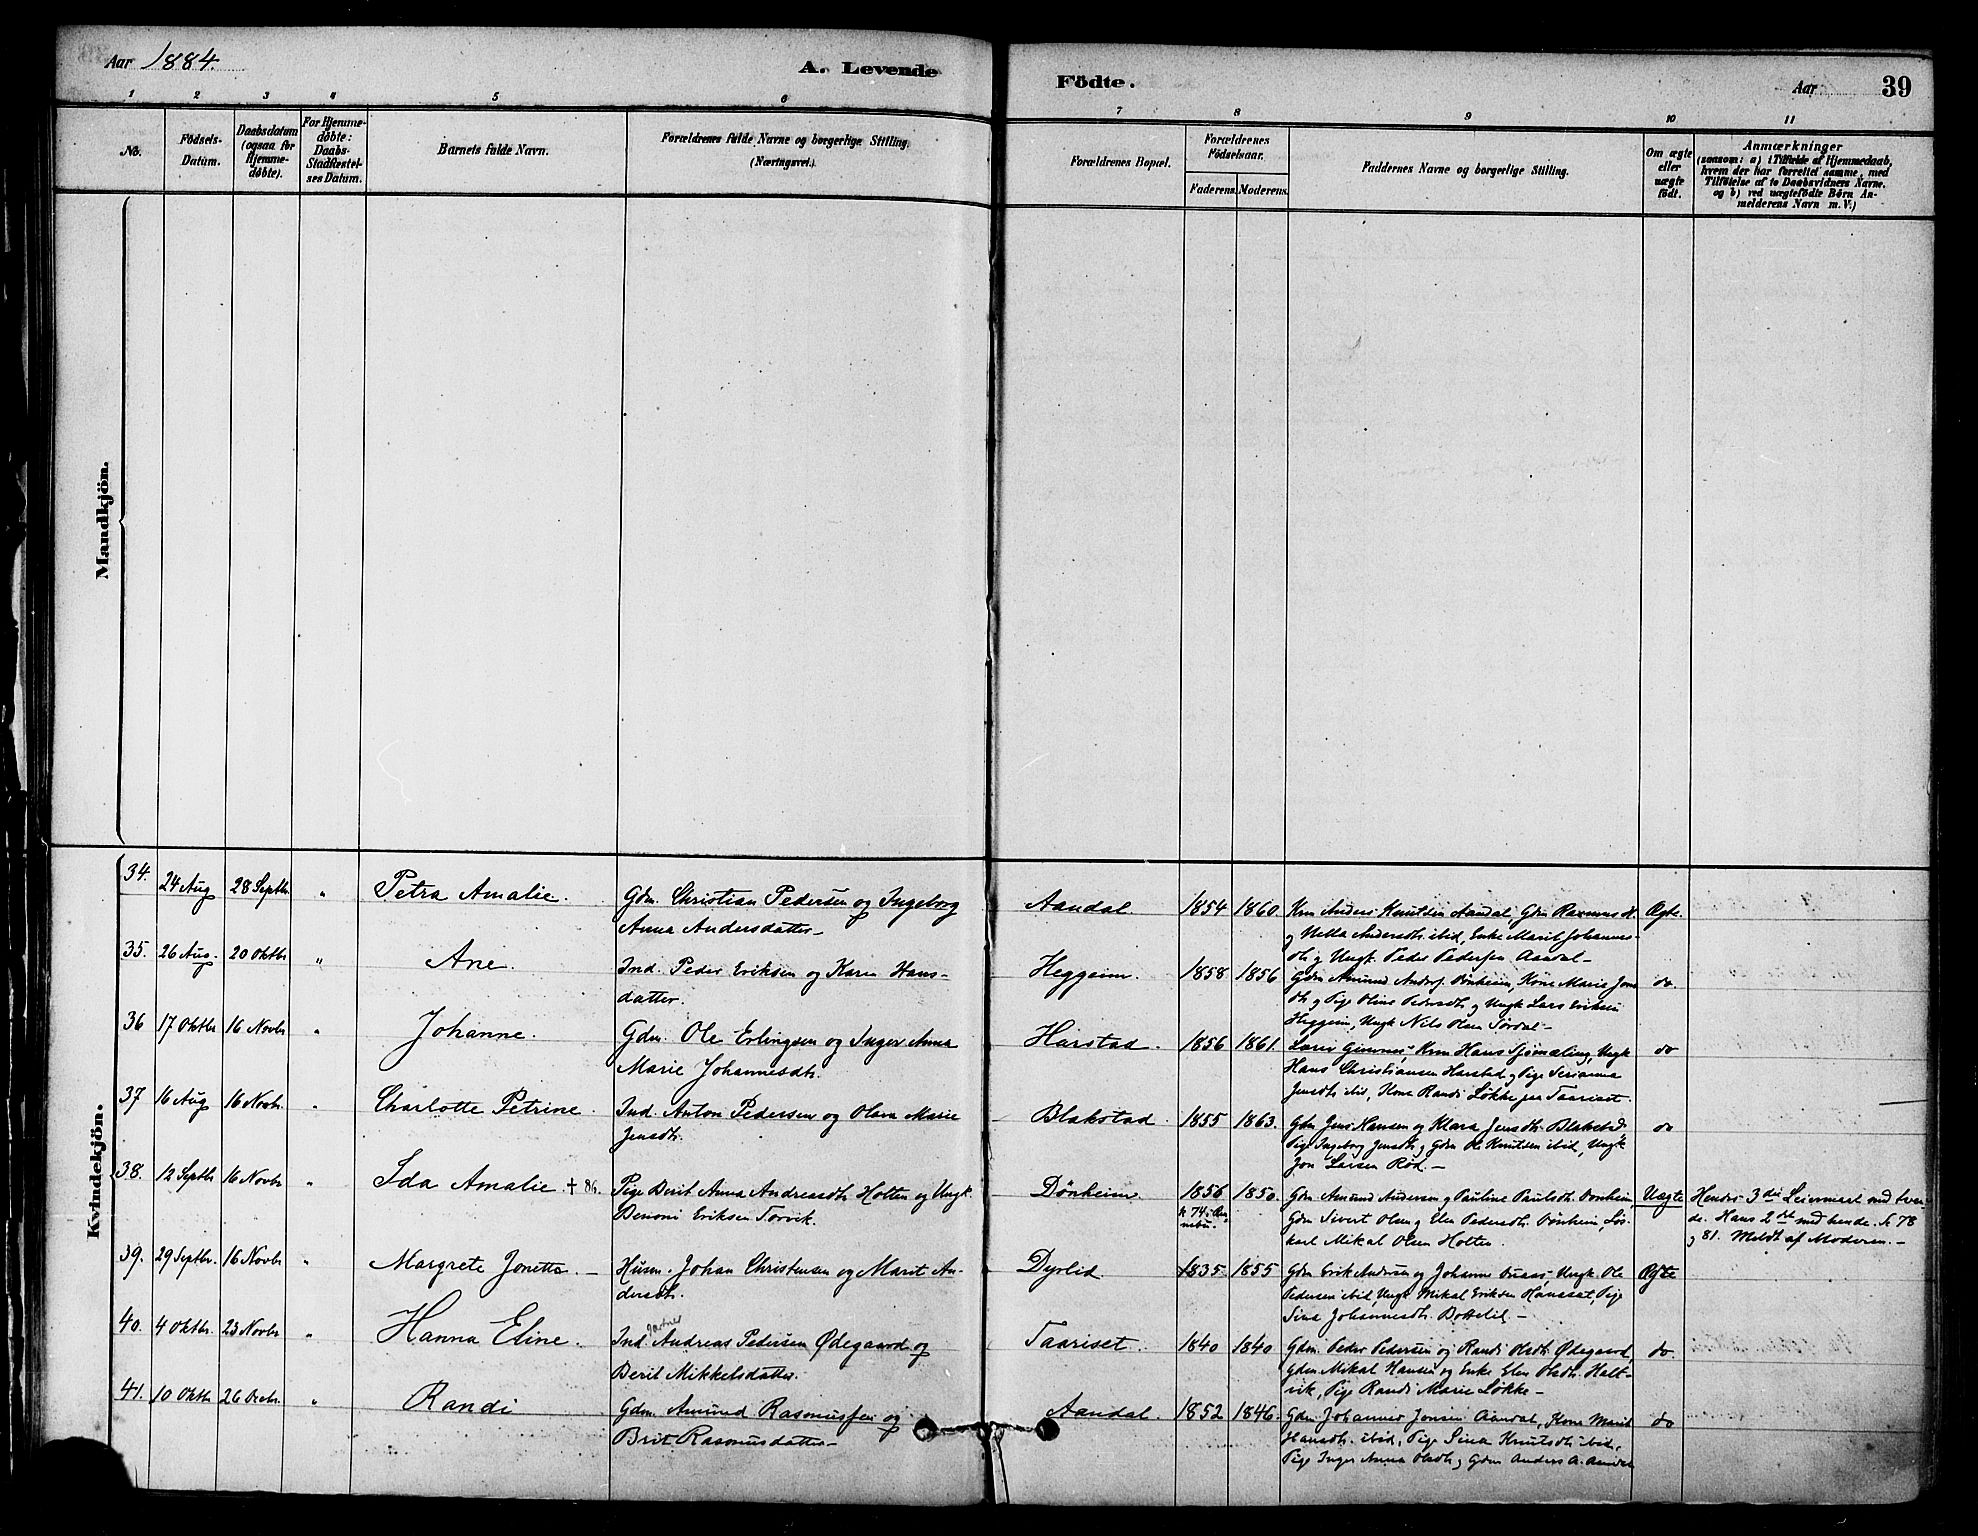 Aar 1884.
A. Levende
Födte.
Aar
39
1 2 3 4 5 6 7 8 9 10 11
No.
Födsels-
Datum.
Daabsdatum
(ogsaa for
Hjemme-
døbte).
For Hjemme-
døbte:
Daabs-
Stadfæstel-
ses Datum.
Barnets fulde Navn.
Forældrenes fulde Navne og borgerlige Stilling.
(Næringsvei.)
Forældrenes Bopæl.
Forældrenes
Födselsaar.
Faderens. Moderens.
Faddernes Navne og borgerlige Stilling.
Om ægte
eller
uægte
födt.
Anmærkninger
(saasom: a) i Tilfælde af Hjemmedaab,
hvem der har forrettet samme, med
Tilföielse af to Daabsvidners Navne,
og b) ved uægtefödte Börn An-
melderens Navn m. V.)
Mandkjön.
Kvindekjön.
34. 24 Aug 28 Septbr " Petra Amalie. Gdm. Christian Pedersen og Ingeborg
Anna Andersdatter
Aandal. 1854 1860. Krm Anders Knutsen Aandal, Gdm Rasmus
og Andersdtr ibid, Enke Marit Johannes-
dtr og Ungk. Peder Pedersen Aandal
Ægte.
35. 26 Aug. 20 Oktbr " Ane. Ind. Peder Eriksen og Karen Hans-
datter.
Heggeim. 1858 1856 Gdm Amund Anders. Dønheim, Kone Marie
dtr og Pige Oline Pedersdtr og Ungk Lars Eriksen
Heggeim, Ungk Nils Olsen
do.
36 17 Oktbr 16 Novbr " Johanne. Gdm. Ole Erlingsen og Inger Anna
Marie Johannesdtr.
Harstad. 1856 1861. Krm Hans Ungk
Hans Christiansen Harstad og Pige
Jensdtr ibid, Kone Randi Løkke paa Taariset.
do
37 16 Aug 16 Novbr. " Charlotte Petrine. Ind. Anton Pedersen og Olava Marie
Jensdtr.
Blakstad 1855 1863. Gdm Jens Hansen og Klara Jensdtr. Blakstad
Pige Ingeborg Jensdtr og Gdm Ole Knutsen ibid, Ungk
Jon Larsen Rød.
do
38. 12 Septbr 16 Novbr " Ida Amalie. † 86. Pige Berit Anna Andreasdtr Holten og Ungk.
Benoni Eriksen Torvik.
Dønheim 1856 1850. Gdm Amund Andersen og Pauline Paulsdtr Dønheim,
Gdm Sivert Olsen og Elen Pedersdtr Dønheim,
karl Mikal Olsen Holten.
Uægte Hendes 3die Leiermaal med
Hans 2det med hende. 78
og 81. Meldt af Moderen.
39. 29 Septbr. 16 Novbr " Margrete Jonetta. Husm. Johan Christensen og Marit An-
dersdtr.
Dyrlid 1835 1855 Gdm Erik Andersen og Johanne Ungk. Ole
Pedersen ibid, Ungk Mikal Eriksen Hanssæt, Pige
Sina Johannesdtr.
Ægte
40. 4 Oktbr. 23 Novbr " Hanna Eline. Ind Andreas Pedersen Ødegaard og
Berit Mikkelsdatter.
Taariset. 1840 1840 Gdm. Peder Pedersen og Randi Olsdtr. Ødegaard,
Gdm. Mikal Hansen og Enke Elen Olsdtr. Halt-
vik, Pige Randi Marie Løkke
do.
41. 10 Oktbr 26 Decbr. " Randi Gdm. Amund Rasmussen og
Brit Rasmusdatter
Aandal. 1852 1846. Gdm. Johannes Jonsen Aandal, Kone Marit
Hansdtr. ibid, Pige Sina Knutsdtr ibid,
Pige Inger Anna Olsdtr og Gdm Anders A. Aandal
do